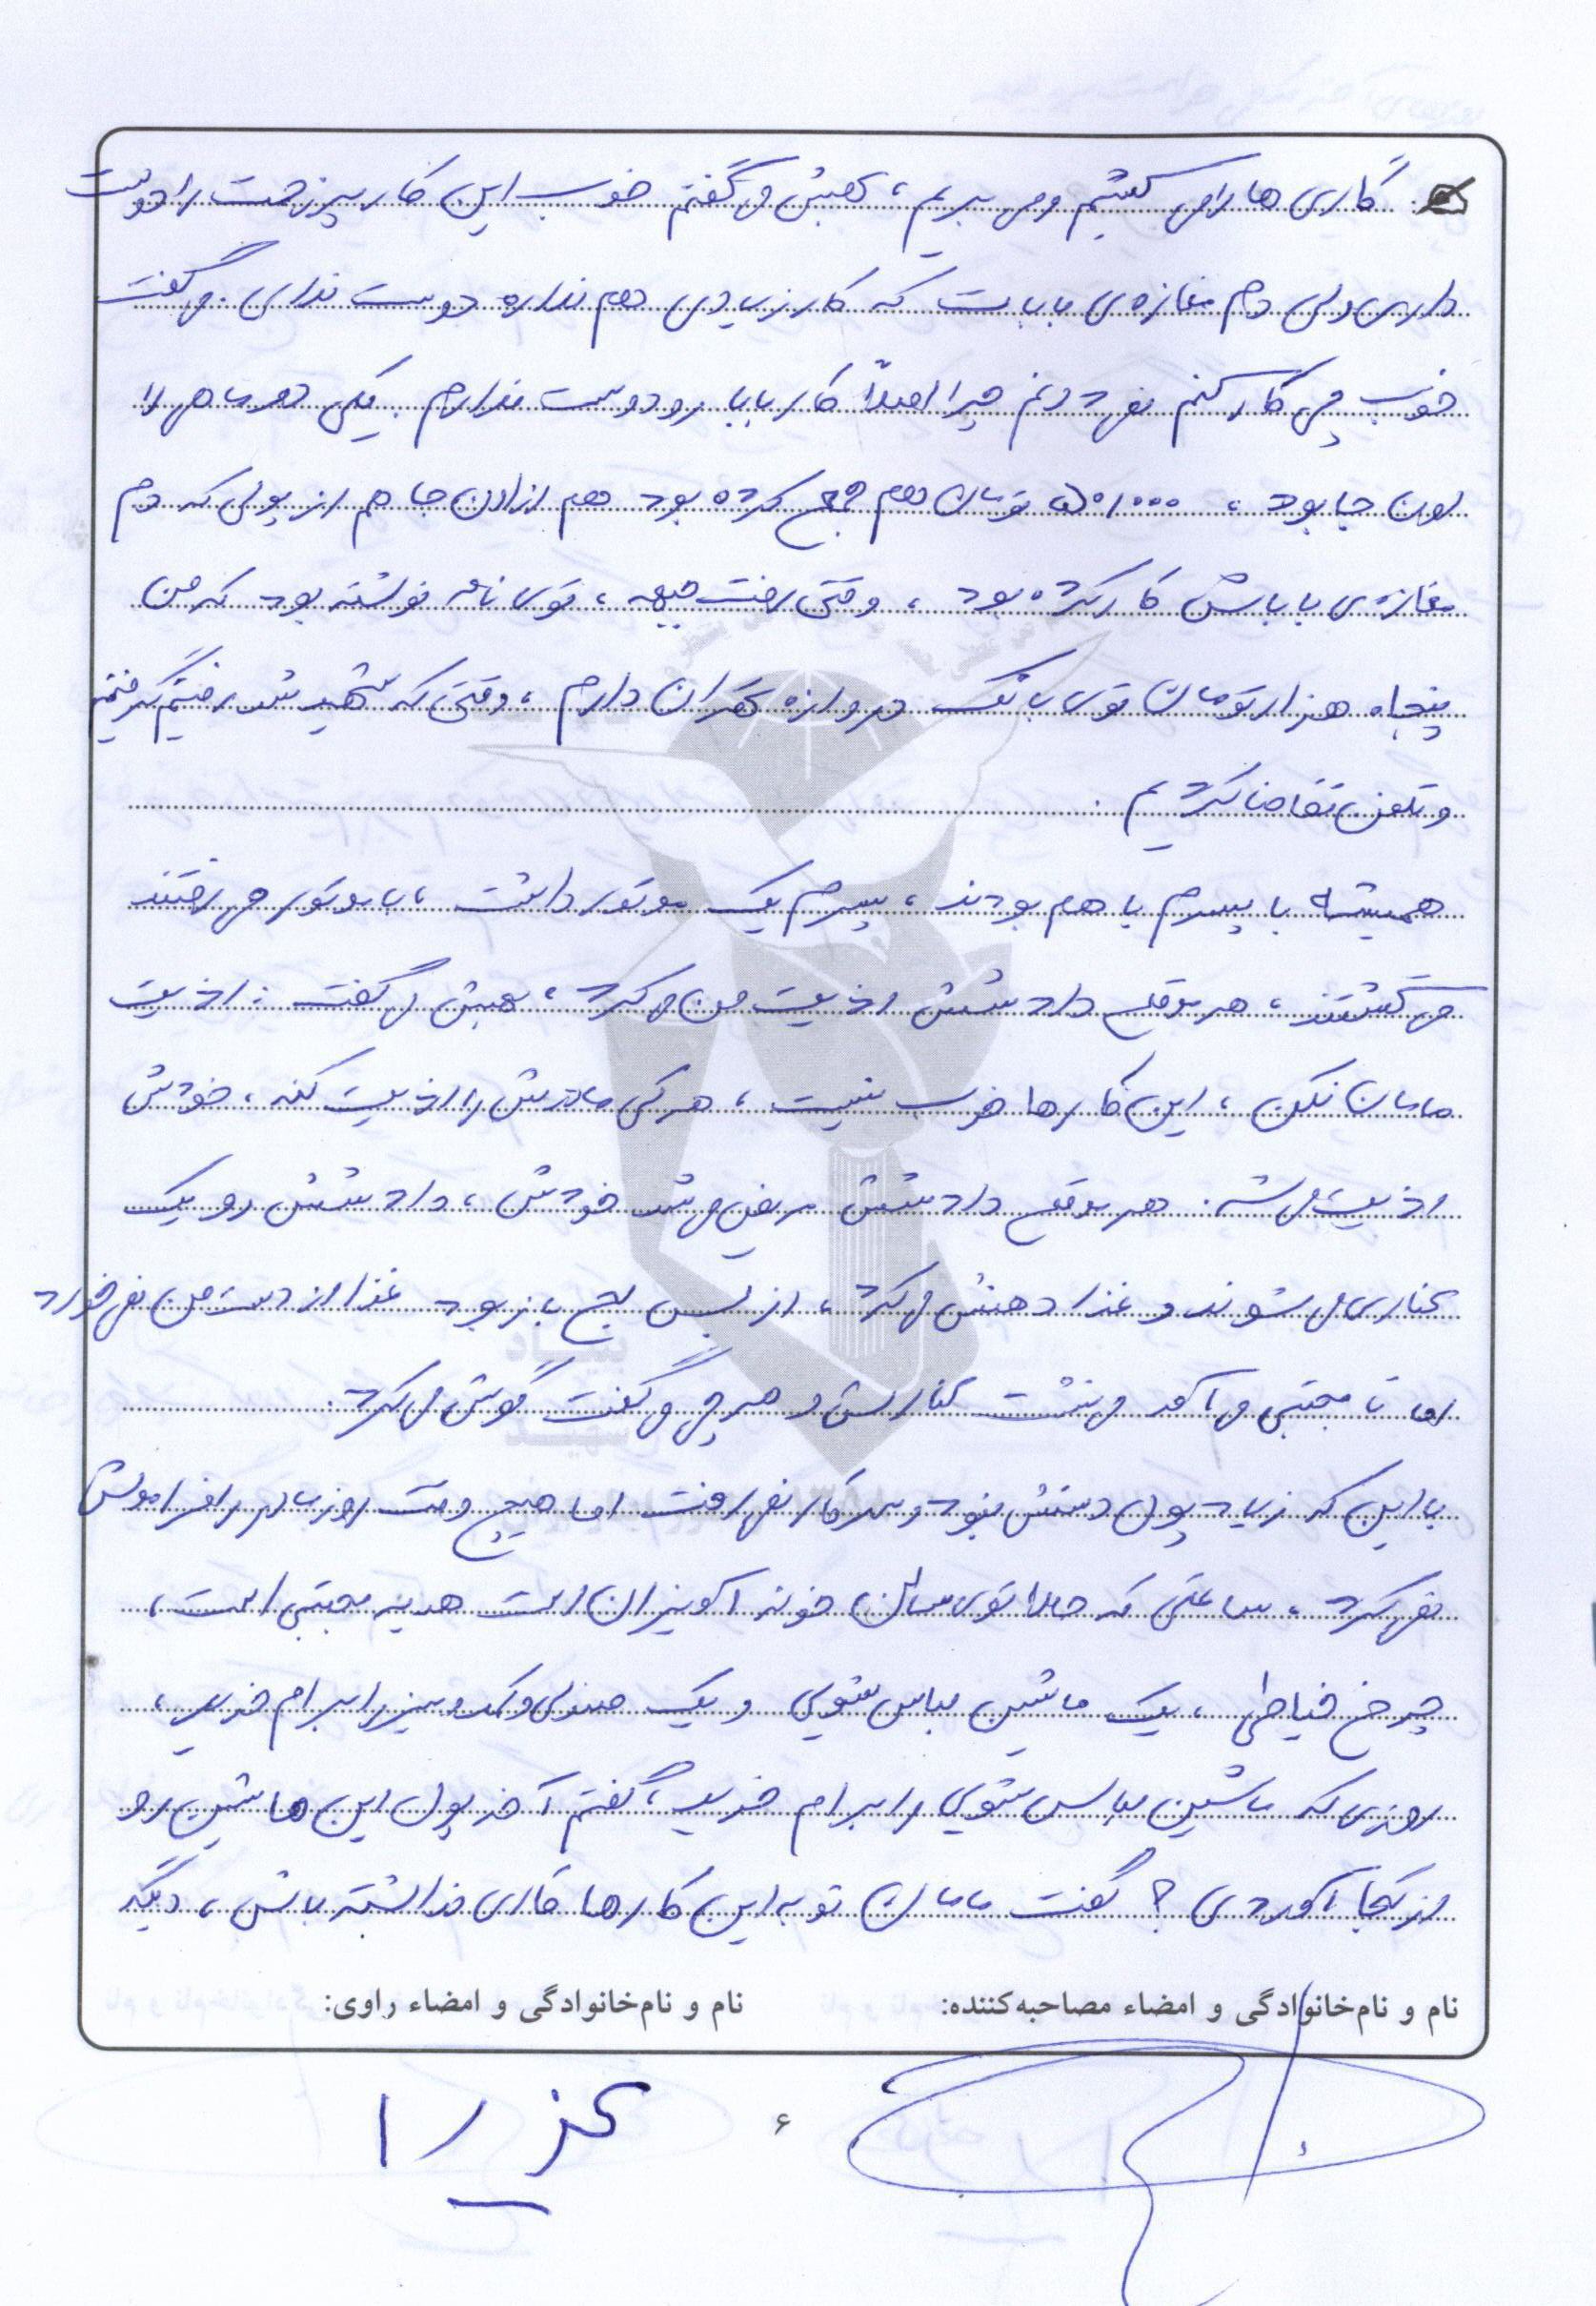 گاری ها را می کشیم و می بریم، بهش می گفتم خوب این کار پرزحمت را دوست
داری ولی دم مغازه ی بابات که کار زیادی هم نداره دوست نداری. می گفت
خوب چی کار کنم نمی دونم چرا اصلاً کار بابا رو دوست ندارم. یکی دو ماهی را
اون جا بود، ۵۰/۰۰۰ تومان هم جمع کرده بود هم از اون جا هم از پولی که دم
مغازه ی باباش کار کرده بود، وقتی رفت جبهه، توی نامه نوشته بود که من
پنجاه هزار تومان توی بانک دروازه تهران دارم، وقتی که شهید شد رفتیم گرفتیم
و تلفن تقاضا کردیم.
همیشه با پسرم با هم بودند، پسرم یک موتور داشت، با موتور می رفتند
می گشتند، هر موقع داداشش اذیت من می کرد، بهش می گفت: اذیت
مامان نکن، این کارها خوب نیست، هر کی مادرش را اذیت کنه، خودش
اذیت می شه. هر موقع داداشش مریض می شد خودش، داداشش رو یک
کناری می نشوند و غذا دهنش می کرد، از بس لج باز بود غذا از دست من نمی خورد
اما تا مجتبی می آمد می نشست کنارش و هر چی می گفت گوش می کرد.
با این که زیاد پول دستش نبود و سر کار نمی رفت اما هیچ وقت روز مادر را فراموش
نمی کرد، ساعتی که حالا توی سالن خونه آویزان است هدیه مجتبی است،
چرخ خیاطی، یک ماشین لباس شویی و یک صندلی و کمد و میز را برام خرید،
روزی که ماشین لباس شویی را برام خرید، گفتم آخه پول این ماشین رو
از کجا آوردی؟ گفت مامان تو به این کارها کاری نداشته باش، دیگه
نام و نام‌خانوادگی و امضاء مصاحبه‌کننده: نام و نام‌خانوادگی و امضاء راوی:
عذرا
۶